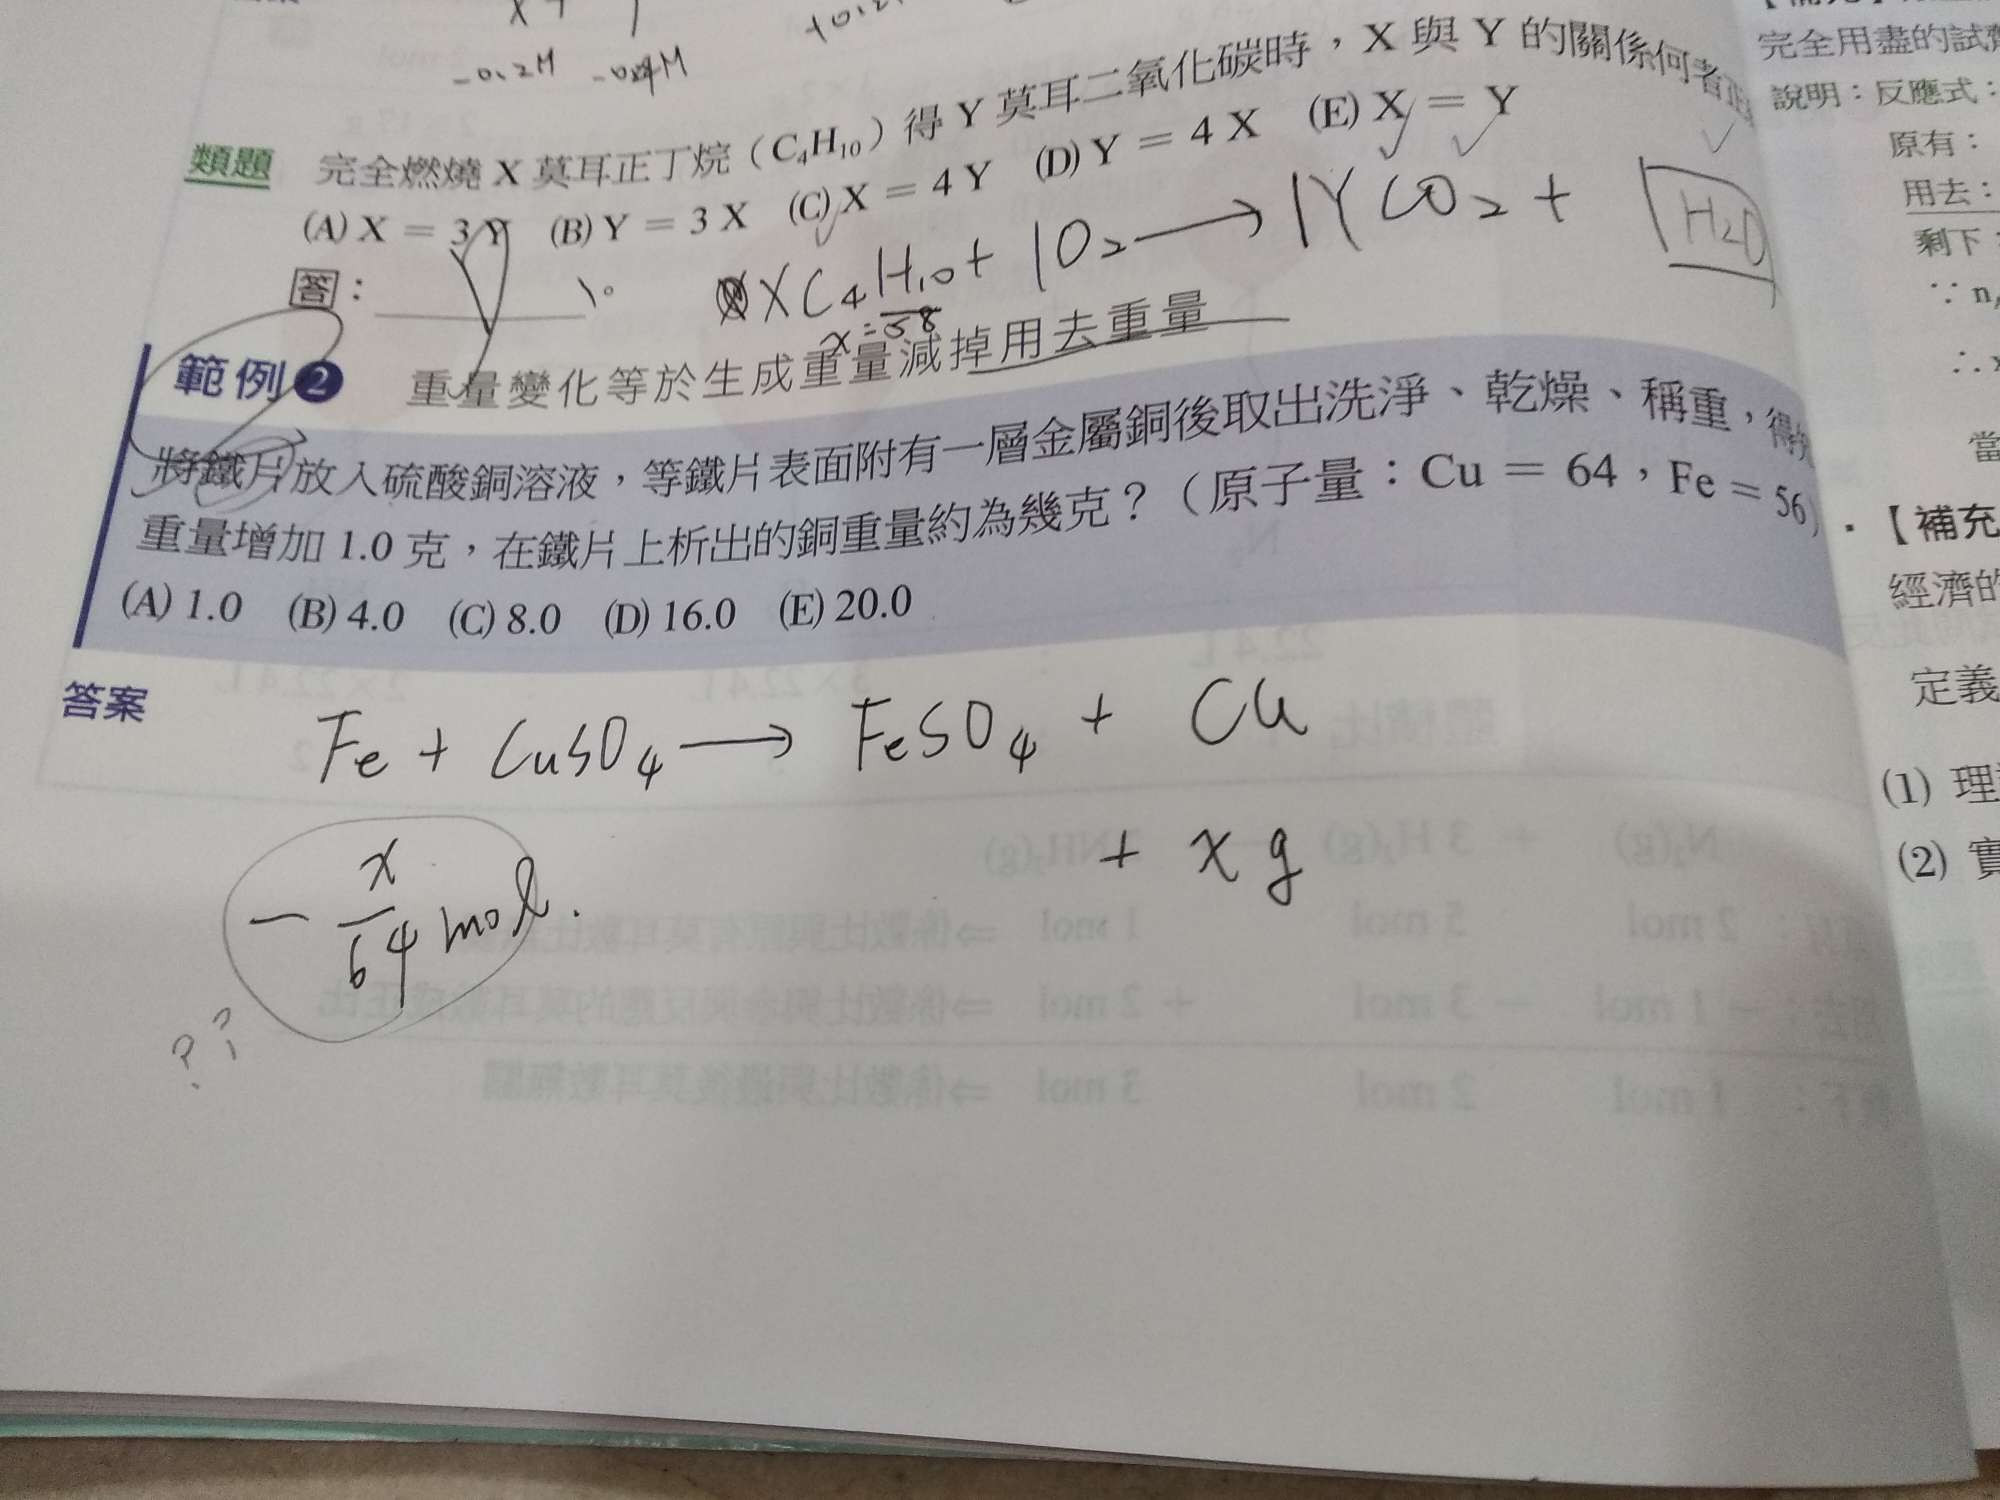 -0.2M -0.4M
類題 完全燃燒 X 莫耳正丁烷（C₄H₁₀）得 Y 莫耳二氧化碳時，X 與 Y 的關係何者
(A) X = 3 Y (B) Y = 3 X (C) X = 4 Y (D) Y = 4 X (E) X = Y
答：
XC₄H₁₀ + 1O₂ → 1YCO₂ + H₂O
x = 58
範例 2 重量變化等於生成重量減掉用去重量
將鐵片放入硫酸銅溶液，等鐵片表面附有一層金屬銅後取出洗淨、乾燥、稱重，得
重量增加 1.0 克，在鐵片上析出的銅重量約為幾克？（原子量：Cu = 64，Fe = 56）
(A) 1.0 (B) 4.0 (C) 8.0 (D) 16.0 (E) 20.0
答案
Fe + CuSO₄ → FeSO₄ + Cu
- x/64 mol. + x g
??
完全用盡的試
說明：反應式：
原有：
用去：
剩下：
∵ n
∴ x
當
．【補充
經濟的
定義
(1) 理
(2) 實